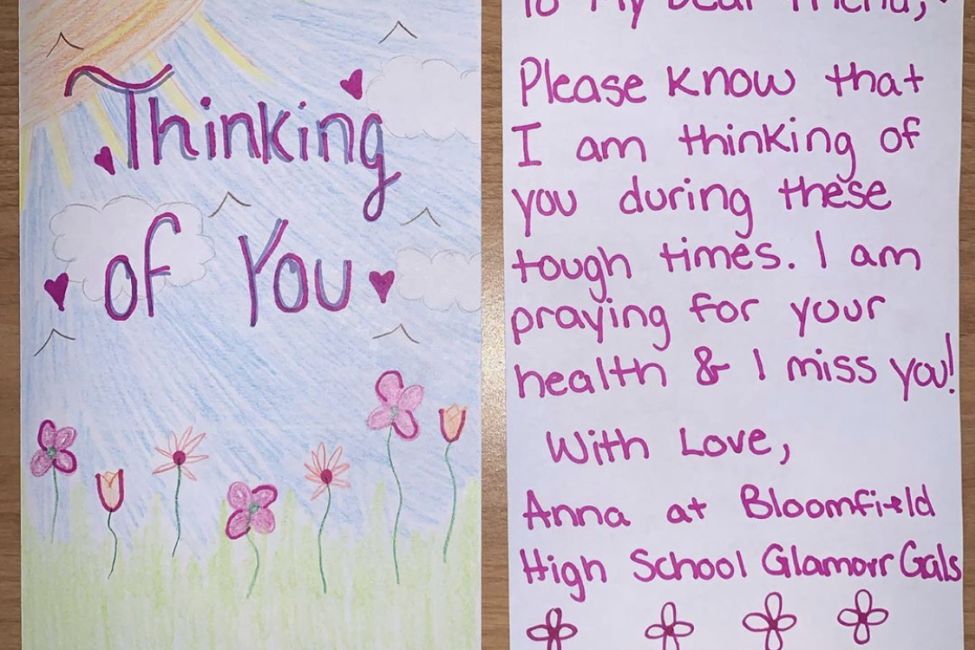 Thinking
of You
To My Dear Friend,
Please know that
I am thinking of
you during these
tough times. I am
praying for your
health & I miss you!
With Love,
Anna at Bloomfield
High School Glamorr Gals